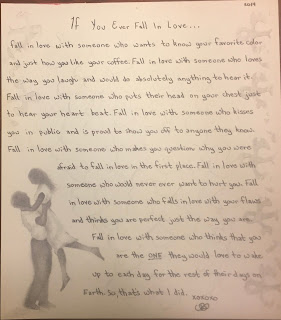 2019
If You Ever Fall In Love...
Fall in love with someone who wants to know your favorite color
and just how you like your coffee. Fall in love with someone who loves
the way you laugh and would do absolutely anything to hear it.
Fall in love with someone who puts their head on your chest just
to hear your heart beat. Fall in love with someone who kisses
you in public and is proud to show you off to anyone they know.
Fall in love with someone who makes you question why you were
afraid to fall in love in the first place. Fall in love with
someone who would never ever want to hurt you. Fall
in love with someone who falls in love with your flaws
and thinks you are perfect just the way you are.
Fall in love with someone who thinks that you
are the ONE they would love to wake
up to each day for the rest of their days on
Earth. So, that's what I did.
xoxoxo